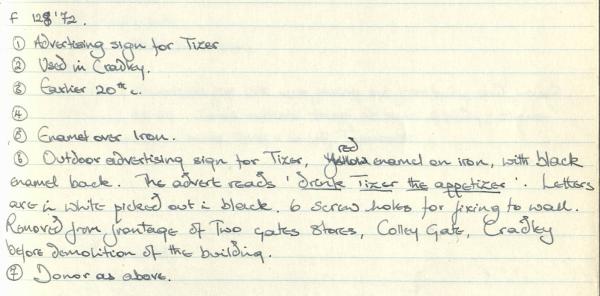 F 128'72.
① Advertising sign for Tizer
② Used in Cradley.
③ Earlier 20th c.
④
⑤ Enamel over Iron.
⑥ Outdoor advertising sign for Tizer, yellow red enamel on iron, with black
enamel back. The advert reads 'drink Tizer the appetizer'. Letters
are in white picked out in black. 6 screw holes for fixing to wall.
Removed from frontage of Two gates Stores, Colley Gate, Cradley
before demolition of the building.
⑦ Donor as above.